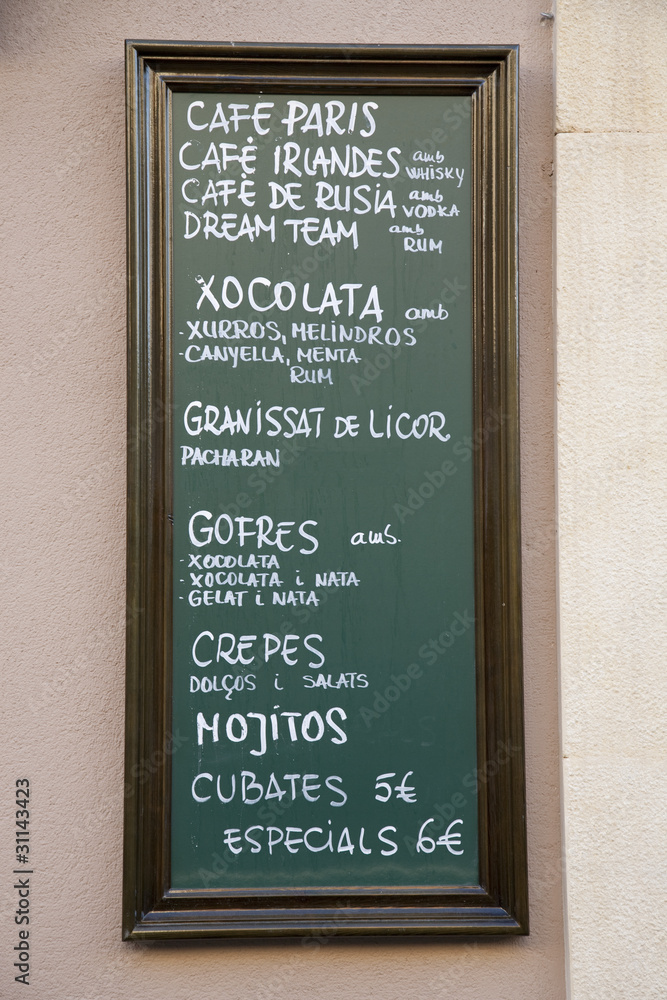 CAFE PARIS
CAFÈ IRLANDES amb WHISKY
CAFÈ DE RUSIA amb VODKA
DREAM TEAM amb RUM
XOCOLATA amb
-XURROS, MELINDROS
-CANYELLA, MENTA
RUM
GRANISSAT DE LICOR
PACHARAN
GOFRES amb.
-XOCOLATA
-XOCOLATA i NATA
-GELAT i NATA
CREPES
DOLÇOS i SALATS
MOJITOS
CUBATES 5€
ESPECIALS 6€
Adobe Stock | #31143423